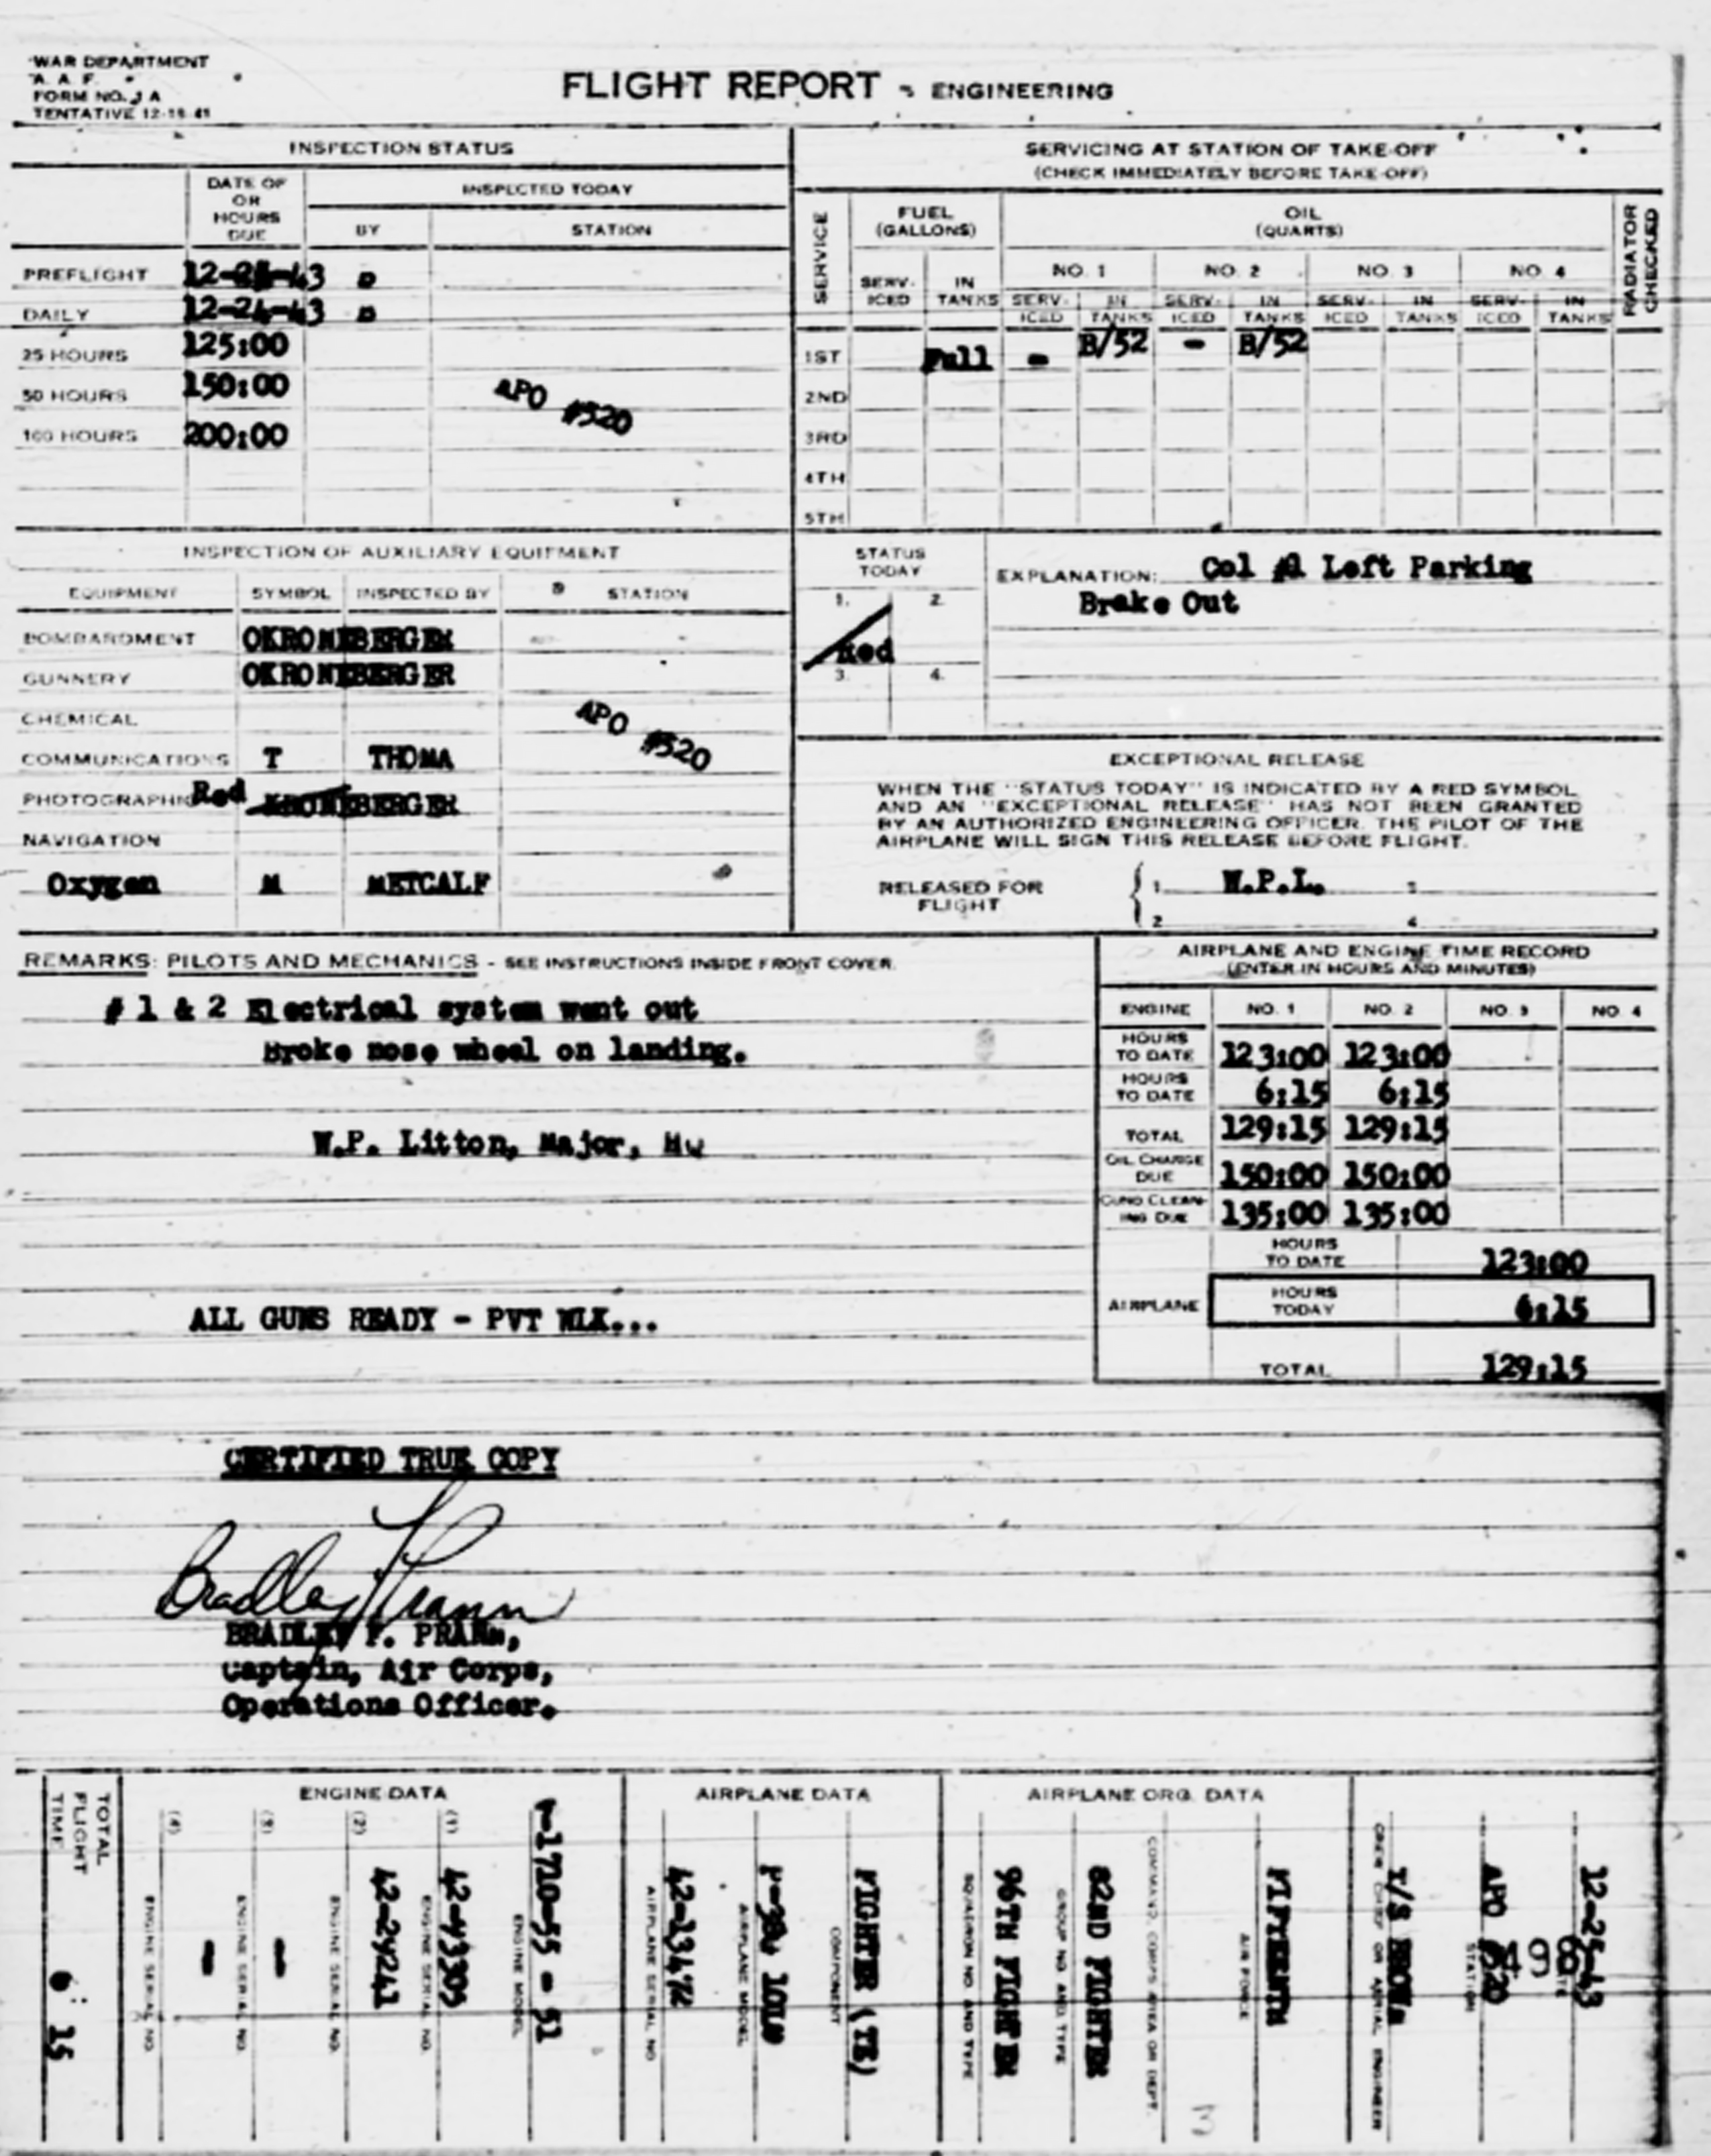 WAR DEPARTMENT
A. A. F.
FORM NO. 1 A
TENTATIVE 12-15-41
FLIGHT REPORT - ENGINEERING
INSPECTION STATUS
DATE OF OR HOURS DUE
INSPECTED TODAY
BY STATION
PREFLIGHT 12-25-43 D
DAILY 12-24-43 D
25 HOURS 125:00
50 HOURS 150:00
100 HOURS 200:00
APO #520
SERVICING AT STATION OF TAKE-OFF
(CHECK IMMEDIATELY BEFORE TAKE-OFF)
SERVICE
FUEL (GALLONS)
OIL (QUARTS)
RADIATOR CHECKED
NO. 1 NO. 2 NO. 3 NO. 4
SERV-ICED IN TANKS SERV-ICED IN TANKS SERV-ICED IN TANKS SERV-ICED IN TANKS SERV-ICED IN TANKS
1ST Full - B/52 - B/52
2ND
3RD
4TH
5TH
INSPECTION OF AUXILIARY EQUIPMENT
EQUIPMENT SYMBOL INSPECTED BY STATION
BOMBARDMENT OKRONEBERGER
GUNNERY OKRONEBERGER
CHEMICAL
COMMUNICATIONS T THOMA
PHOTOGRAPHIC Red KRONEBERGER
NAVIGATION
Oxygen M METCALF
APO #520
STATUS TODAY
1. 2.
Red
3. 4.
EXPLANATION: Col Left Parking
Brake Out
EXCEPTIONAL RELEASE
WHEN THE "STATUS TODAY" IS INDICATED BY A RED SYMBOL
AND AN "EXCEPTIONAL RELEASE" HAS NOT BEEN GRANTED
BY AN AUTHORIZED ENGINEERING OFFICER, THE PILOT OF THE
AIRPLANE WILL SIGN THIS RELEASE BEFORE FLIGHT.
RELEASED FOR FLIGHT
1. W.P.L. 3
2 4
REMARKS: PILOTS AND MECHANICS - SEE INSTRUCTIONS INSIDE FRONT COVER.
# 1 & 2 Electrical system went out
Broke nose wheel on landing.
W.P. Litton, Major, Hq
ALL GUNS READY - PVT
AIRPLANE AND ENGINE TIME RECORD
(ENTER IN HOURS AND MINUTES)
ENGINE NO. 1 NO. 2 NO. 3 NO. 4
HOURS TO DATE 123:00 123:00
HOURS TO DATE 6:15 6:15
TOTAL 129:15 129:15
OIL CHANGE DUE 150:00 150:00
CUNO CLEAN-ING DUE 135:00 135:00
AIRPLANE
HOURS TO DATE 123:00
HOURS TODAY 6:15
TOTAL 129:15
CERTIFIED TRUE COPY
Bradley Prann
BRADLEY F. PRANN,
Captain, Air Corps,
Operations Officer.
TOTAL FLIGHT TIME
6:15
ENGINE DATA
(4) ENGINE SERIAL NO.
-
(3) ENGINE SERIAL NO.
-
(2) ENGINE SERIAL NO.
42-29241
(1) ENGINE SERIAL NO.
ENGINE MODEL
V-1710-55 - 51
AIRPLANE DATA
AIRPLANE SERIAL NO
42-13472
AIRPLANE MODEL
COMPONENT
FIGHTER (TE)
AIRPLANE ORG. DATA
SQUADRON NO. AND TYPE
96TH FIGHTER
GROUP NO. AND TYPE
82ND FIGHTER
COMMAND, CORPS AREA OR DEPT.
AIR FORCE
FIFTEENTH
CREW CHIEF OR AERIAL ENGINEER
T/S BROWN
STATION
APO 520
DATE
12-25-43